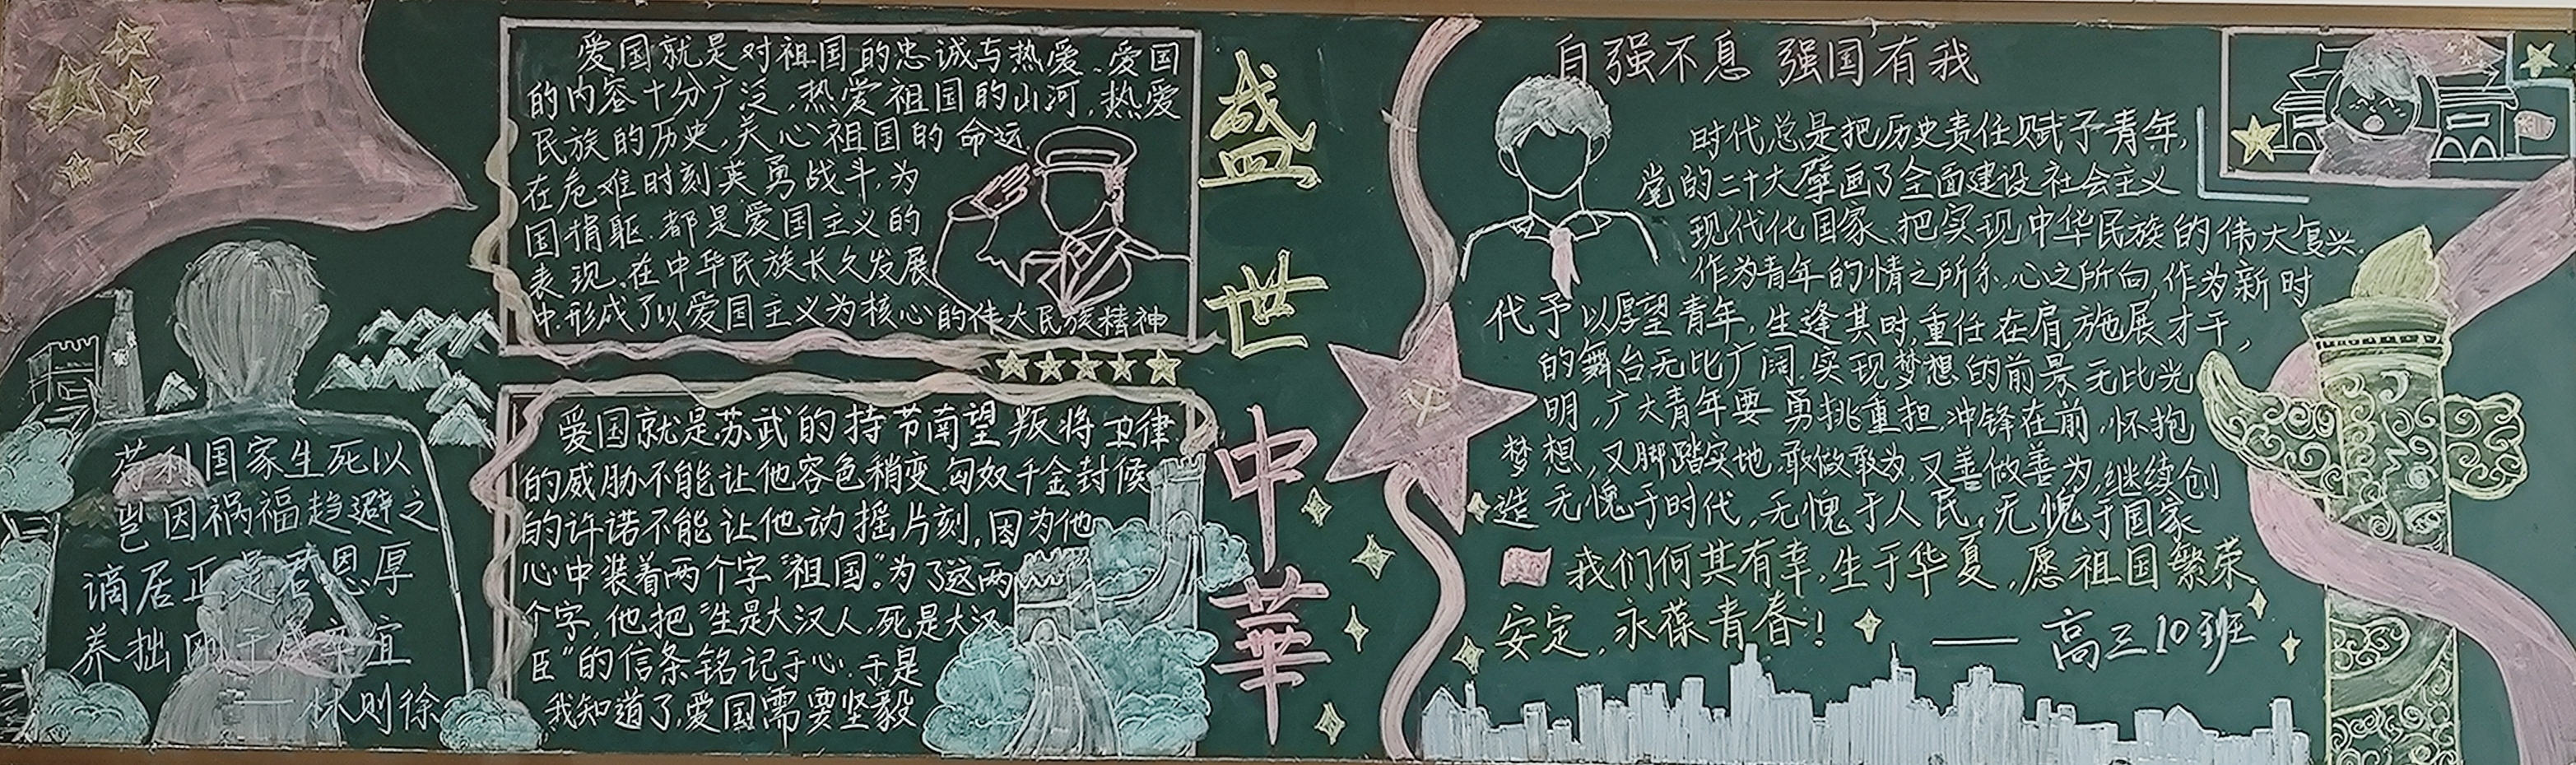 苟利国家生死以
岂因祸福趋避之
谪居正是君恩厚
养拙刚于戍卒宜
——林则徐
爱国就是对祖国的忠诚与热爱、爱国
的内容十分广泛,热爱祖国的山河,热爱
民族的历史,关心祖国的命运,
在危难时刻英勇战斗,为
国捐躯.都是爱国主义的
表现.在中华民族长久发展
中.形成了以爱国主义为核心的伟大民族精神
爱国就是苏武的持节南望叛将卫律
的威胁不能让他容色稍变.匈奴千金封侯
的许诺不能让他动摇片刻,因为他
心中装着两个字“祖国”.为了这两
个字,他把“生是大汉人,死是大汉
臣”的信条铭记于心.于是
我知道了,爱国需要坚毅
盛世中華
自强不息 强国有我
时代总是把历史责任赋予青年,
党的二十大擘画了全面建设社会主义
现代化国家.把实现中华民族的伟大复兴.
作为青年的情之所系,心之所向,作为新时
代予以厚望青年,生逢其时,重任在肩,施展才干,
的舞台无比广阔.实现梦想的前景无比光
明,广大青年要勇挑重担,冲锋在前,怀抱
梦想,又脚踏实地,敢做敢为,又善做善为,继续创
造无愧于时代,无愧于人民,无愧于国家
我们何其有幸,生于华夏,愿祖国繁荣
安定,永葆青春!
——高三10班